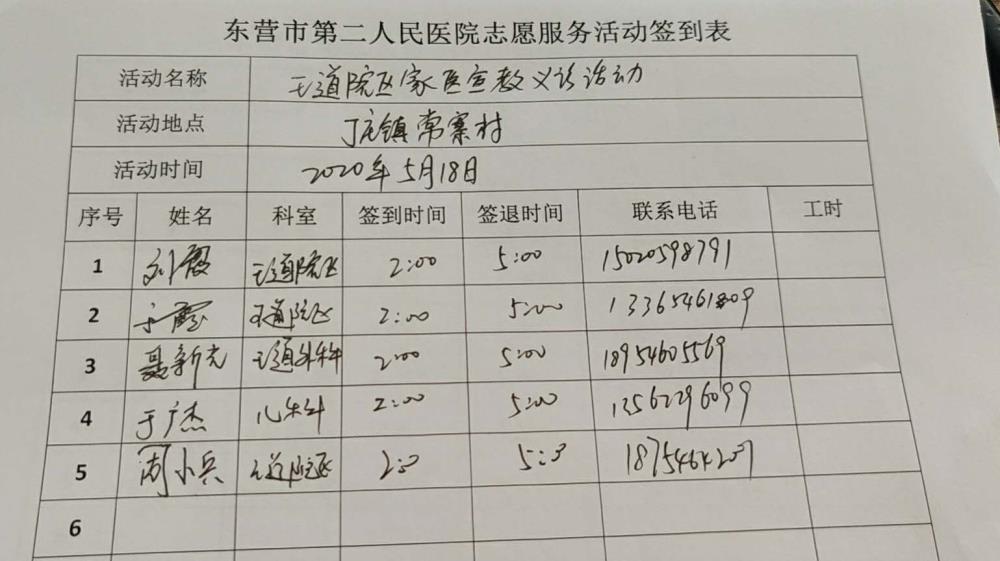 东营市第二人民医院志愿服务活动签到表
活动名称 王道院区家医宣教义诊活动
活动地点 丁庄镇常寨村
活动时间 2020年5月18日
序号 姓名 科室 签到时间 签退时间 联系电话 工时
1 刘霞 王道院区 2:00 5:00 15020598791
2 于霞 王道院区 2:00 5:00 13365461809
3 聂新光 王道外科 2:00 5:00 18954605569
4 于广杰 儿科 2:00 5:00 13562296099
5 周小兵 王道院区 2:0 5:0
6